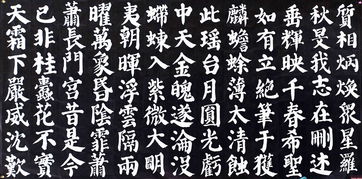 質相炳煥眾星羅
秋旻我志在刪述
垂輝映千春希聖
如有立絕筆于獲
麟蟾蜍薄太清蝕
此瑤台月圓光虧
中天金魄遂淪沒
螮蝀入紫微大明
夷朝暉浮雲隔兩
曜萬象昏陰霏蕭
蕭長門宮昔是今
已非桂蠹花不實
天霜下嚴威沈歎